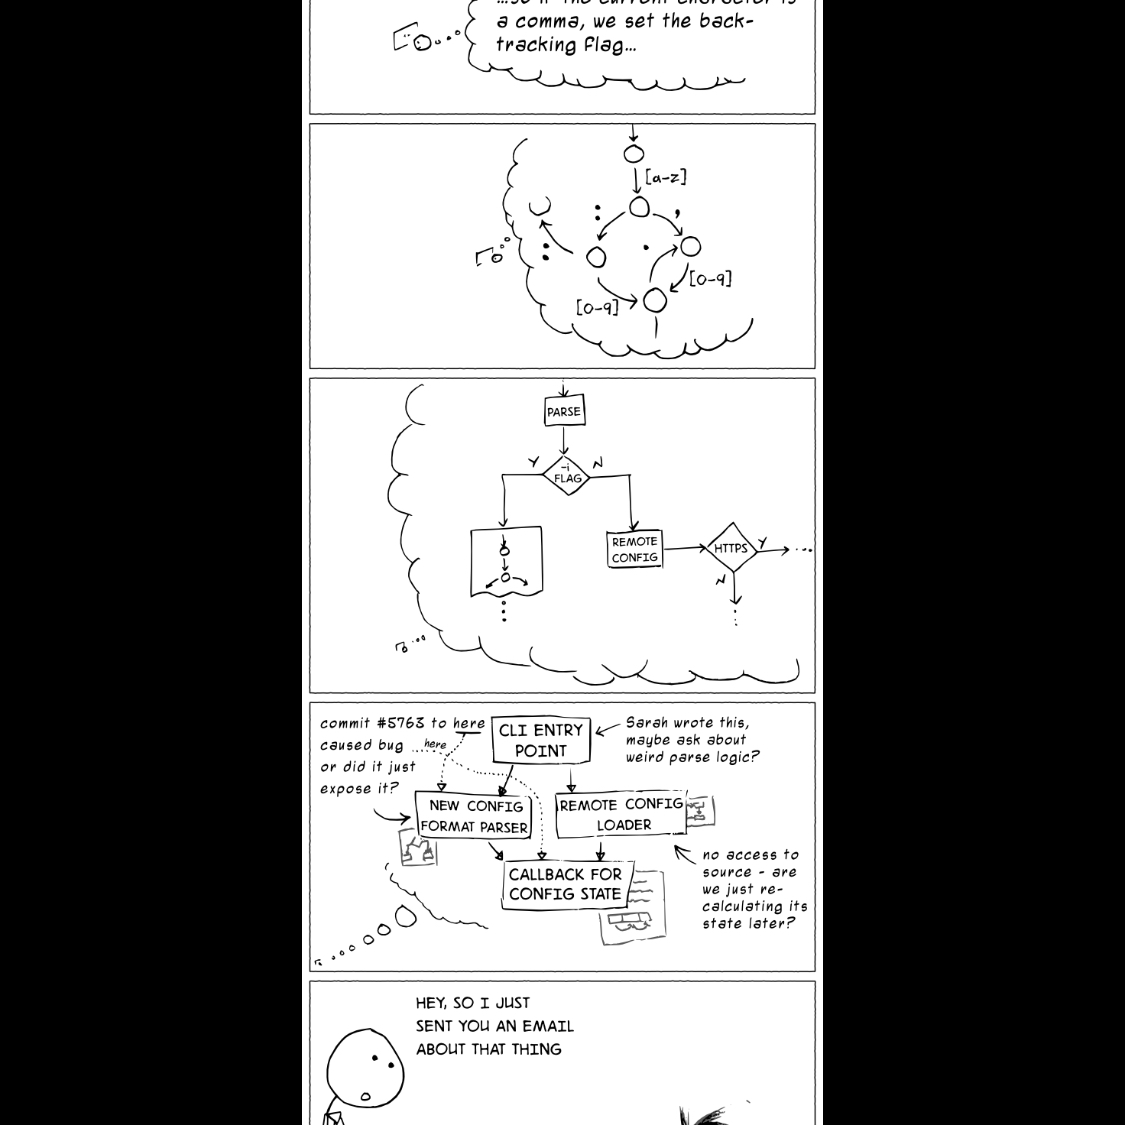 ...so if the current character is
a comma, we set the back-
tracking flag...
[a-z]
:
,
:
.
[0-9]
[0-9]
PARSE
Y
-i
FLAG
N
REMOTE
CONFIG
HTTPS
Y
N
commit #5763 to here
caused bug ... here
or did it just
expose it?
CLI ENTRY
POINT
Sarah wrote this,
maybe ask about
weird parse logic?
NEW CONFIG
FORMAT PARSER
REMOTE CONFIG
LOADER
CALLBACK FOR
CONFIG STATE
no access to
source - are
we just re-
calculating its
state later?
HEY, SO I JUST
SENT YOU AN EMAIL
ABOUT THAT THING